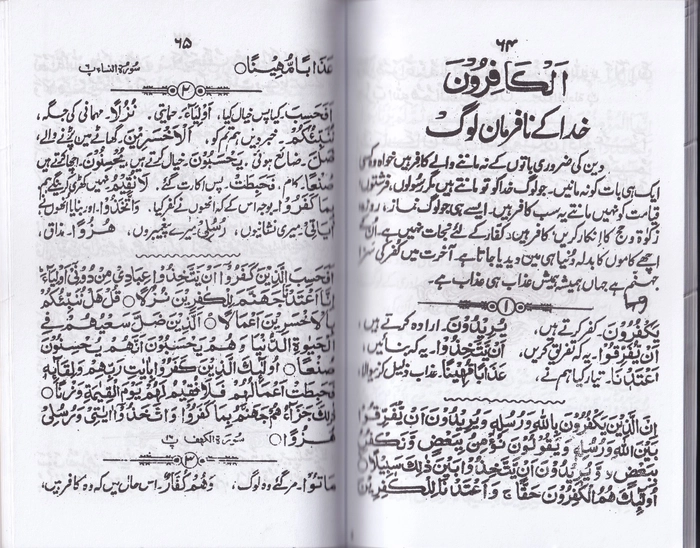 ۶۴
اَلْكَافِرُوْنَ
خدا کے نافرمان لوگ
دین کی ضروری باتوں کے نہ ماننے والے کافر ہیں خواہ وہ کسی
ایک ہی بات کو نہ مانیں۔ جو لوگ خدا کو تو مانتے ہیں مگر رسولوں، فرشتوں
قیامت کو نہیں مانتے یہ سب کافر ہیں۔ ایسے ہی جو لوگ نماز، روزہ
زکوٰۃ و حج کا انکار کریں کافر ہیں۔ کفار کے لئے نجات نہیں ہے۔ اُن کے
اچھے کاموں کا بدلہ دُنیا ہی میں دیدیا جاتا ہے۔ آخرت میں کفر کی سزا
جہنم ہے جہاں ہمیشہ ہمیش عذاب ہی عذاب ہے۔
۱
يَكْفُرُوْنَ۔ کفر کرتے ہیں، يُرِيْدُوْنَ۔ ارادہ کرتے ہیں،
اَنْ يُّفَرِّقُوْا۔ یہ کہ تفریق کریں، اَنْ يَّتَّخِذُوْا۔ یہ کہ بنائیں،
اَعْتَدْنَا۔ تیار کیا ہم نے، عَذَابًا مُّهِيْنًا۔ عذاب ذلیل کرنیوالا،
اِنَّ الَّذِيْنَ يَكْفُرُوْنَ بِاللهِ وَرُسُلِهٖ وَيُرِيْدُوْنَ اَنْ يُّفَرِّقُوْا
بَيْنَ اللهِ وَرُسُلِهٖ وَيَقُوْلُوْنَ نُؤْمِنُ بِبَعْضٍ وَّنَكْفُرُ
بِبَعْضٍ لا وَّيُرِيْدُوْنَ اَنْ يَّتَّخِذُوْا بَيْنَ ذٰلِكَ سَبِيْلًا
اُولٰٓئِكَ هُمُ الْكٰفِرُوْنَ حَقًّا ج وَاَعْتَدْنَا لِلْكٰفِرِيْنَ
۶۵
عَذَابًا مُّهِيْنًا ○ سورۃ النساء پ ۶
۲
اَفَحَسِبَ۔ کیا پس خیال کیا، اَوْلِيَآءَ۔ حمایتی، نُزُلًا۔ مہمانی کی جگہ،
نُنَبِّئُكُمْ۔ خبر دیں ہم تم کو، اَلْاَخْسَرِيْنَ۔ گھاٹے میں پڑنے والے،
ضَلَّ۔ ضائع ہوئی، يَحْسَبُوْنَ۔ خیال کرتے ہیں، يُحْسِنُوْنَ۔ اچھا کرتے ہیں
صُنْعًا۔ کام، فَحَبِطَتْ۔ پس اکارت گئے، لَا نُقِيْمُ۔ نہیں کھڑی کرینگے ہم
بِمَا كَفَرُوْا۔ بوجہ اس کے کہ انھوں نے کفر کیا، وَاتَّخَذُوْا۔ اور بنایا انھوں نے
اٰيَاتِيْ۔ میری نشانیوں، رُسُلِيْ۔ میرے پیغمبروں، هُزُوًا۔ مذاق،
اَفَحَسِبَ الَّذِيْنَ كَفَرُوْا اَنْ يَّتَّخِذُوْا عِبَادِيْ مِنْ دُوْنِيْ اَوْلِيَآءَ
اِنَّا اَعْتَدْنَا جَهَنَّمَ لِلْكٰفِرِيْنَ نُزُلًا ○ قُلْ هَلْ نُنَبِّئُكُمْ
بِالْاَخْسَرِيْنَ اَعْمَالًا ○ اَلَّذِيْنَ ضَلَّ سَعْيُهُمْ فِي
الْحَيٰوةِ الدُّنْيَا وَهُمْ يَحْسَبُوْنَ اَنَّهُمْ يُحْسِنُوْنَ
صُنْعًا ○ اُولٰٓئِكَ الَّذِيْنَ كَفَرُوْا بِاٰيٰتِ رَبِّهِمْ وَلِقَآئِهٖ
فَحَبِطَتْ اَعْمَالُهُمْ فَلَا نُقِيْمُ لَهُمْ يَوْمَ الْقِيٰمَةِ وَزْنًا ○
ذٰلِكَ جَزَآؤُهُمْ جَهَنَّمُ بِمَا كَفَرُوْا وَاتَّخَذُوْا اٰيٰتِيْ وَرُسُلِيْ
هُزُوًا ○ سورۃ الکہف پ ۱۶
۳
مَاتُوْا۔ مر گئے وہ لوگ، وَهُمْ كُفَّارٌ۔ اس حال میں کہ وہ کافر ہیں،